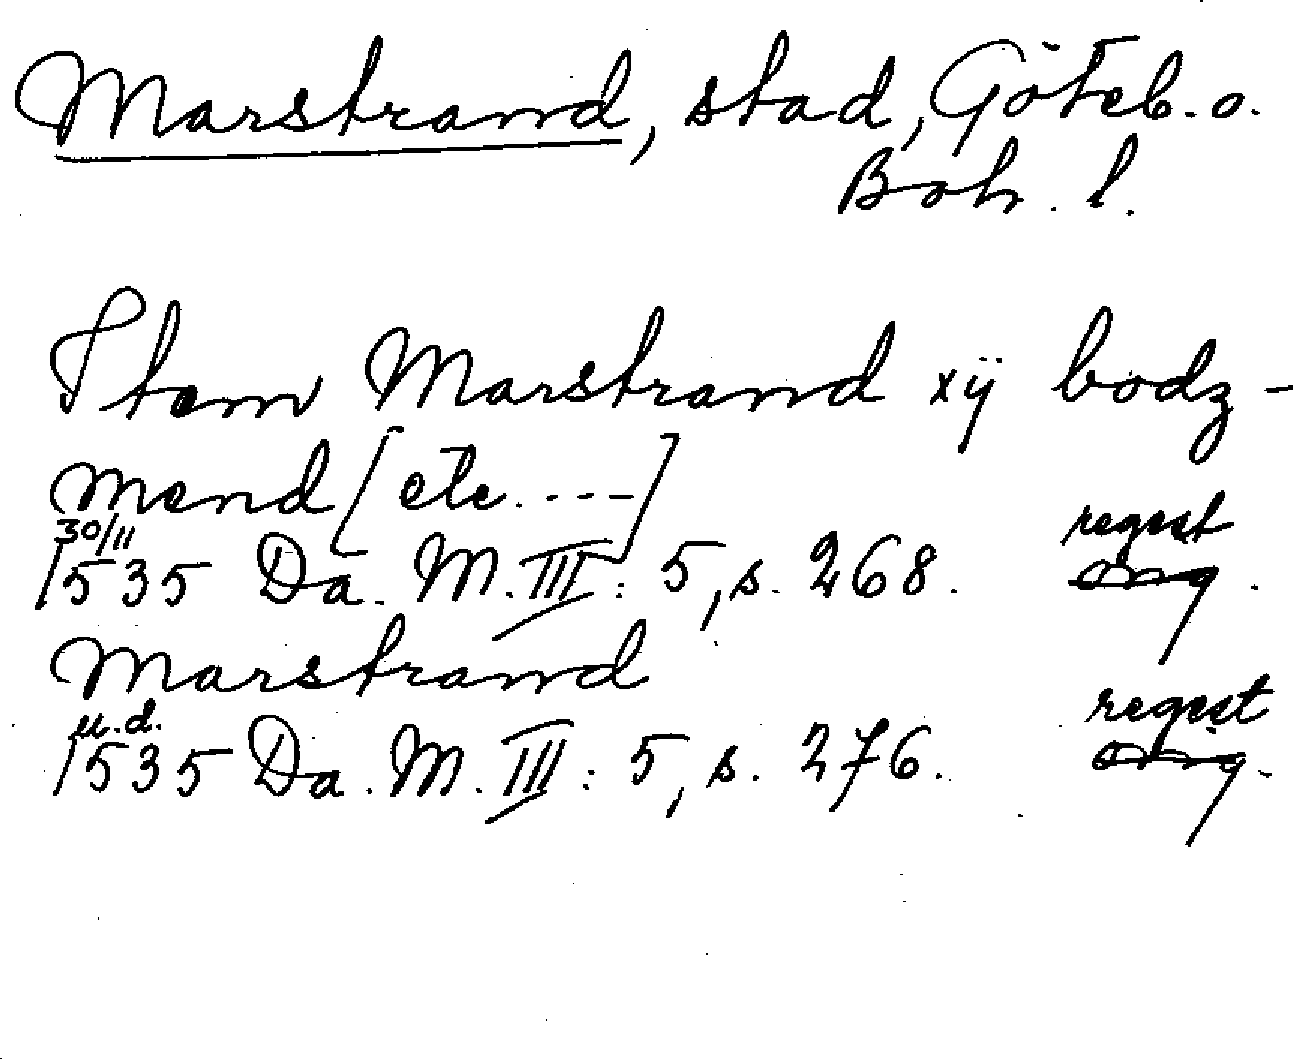 Marstrand, stad, Göteb. o.
Boh. l.
Item Marstrand xÿ bodz-
mend [etc. ---]
30/11 regest
1535 Da. M. III: 5, s. 268. orig.
Marstrand
u. d. regest
1535 Da. M. III: 5, s. 276. orig.